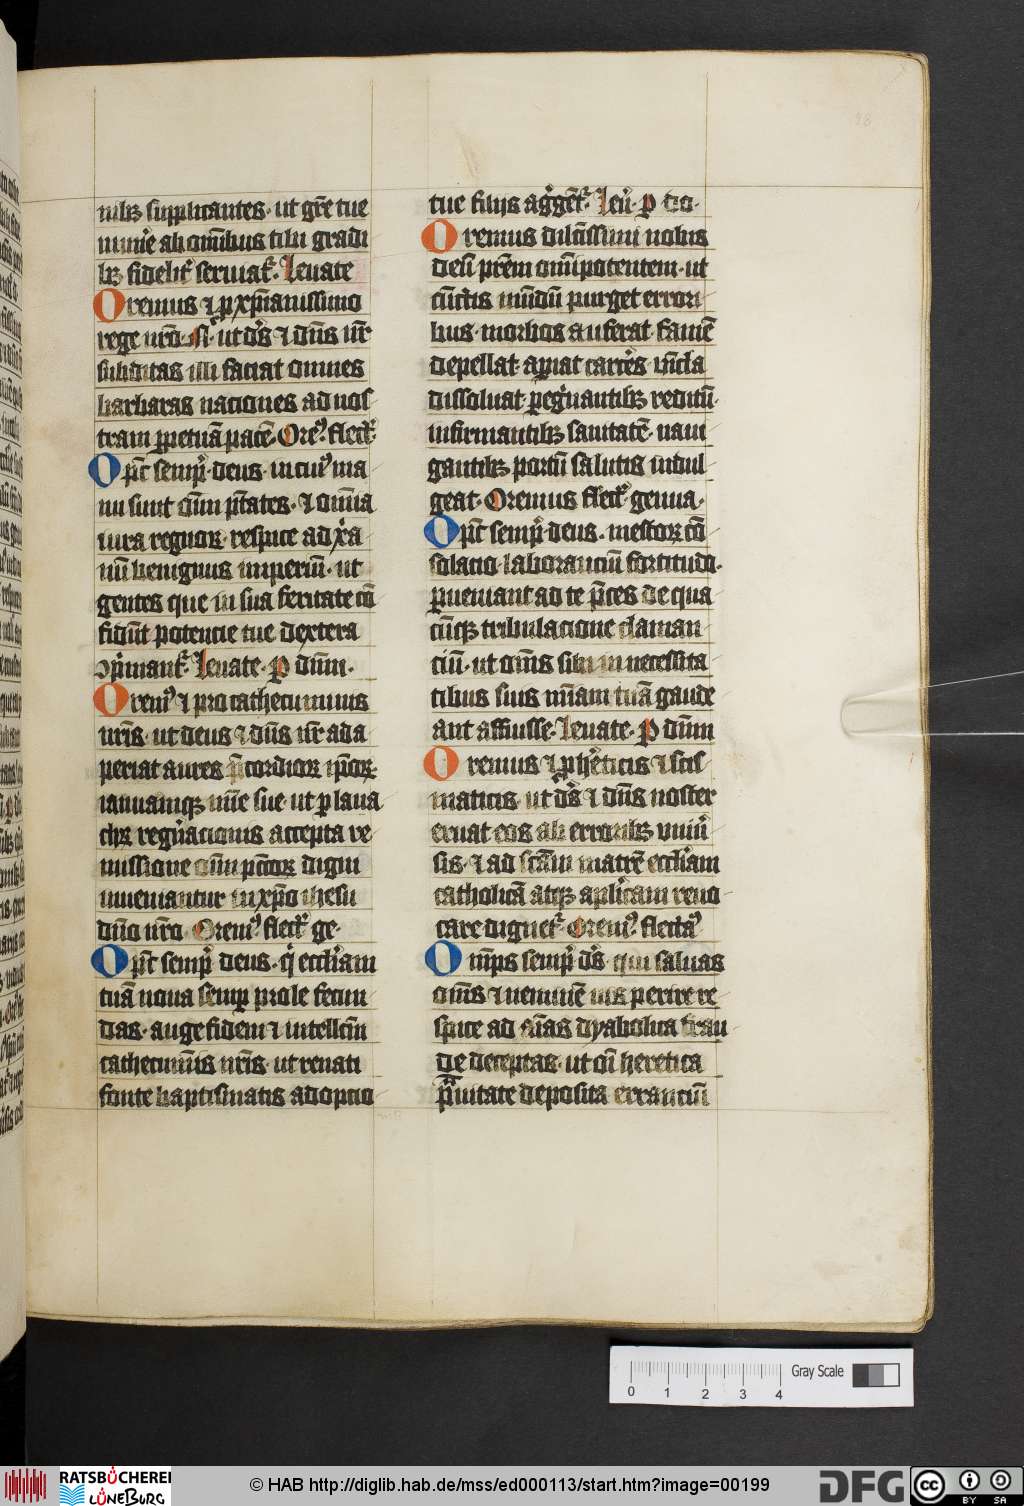 nibꝫ supplicantes · ut gr̄e tue
mūie ab om̄ibus tibi gradi
bꝫ fidelit̾ seruiat̾ · Leuate
Oremus ⁊ p xp̄ianissimo
rege nr̄o · N̾ · ut dꝰs ⁊ dn̄s nr̄
subditas illi faciat omnes
barbaras naciones ad nos
tram ꝑpetuā pacē · Oreꝰ · flect̾
Opc̄ semp̾ · deus · in cuiꝰ ma
nu sunt om̄ p̄tates · ⁊ om̄ia
iura regnoꝝ · respice ad xꝰa
nū benignus imperiū · ut
gentes que in sua feritate cō
fidūt potencie tue dextera
ꝯp̾mant̾ · Leuate · P dūm ·
Oremꝰ ⁊ pro cathecuminus
nr̄is · ut deus ⁊ dn̄s nr̄ ada
periat aures p̄cordioꝝ ip̄oꝝ
ianuamqꝫ mīe sue · ut ꝑ laua
chꝝ regn̾acionis accepta re
missione om̄ pc̄toꝝ digni
inueniantur in xp̄o ihesu
dn̄o nr̄o · Oremꝰ flect̾ ge ·
Opc̄ semp̾ deus · q̾ eccli̾am
tuā noua semp̱ prole fecun
das · auge fidem ⁊ intellc̄m
cathecumīs nr̄is · ut renati
fonte baptismatis adoptio
tue filijs ag̾get̾ · Leu̾ · P dō ·
Oremus dilc̄issimi nobis
deū pr̄em om̄ipotentem · ut
cūctis mūdū purget errori
bus · morbos auferat · famē
depellat · aꝑiat carc̾es · vīcla
dissoluat · ꝑeg̾nantibꝫ reditū ·
infirmantibꝫ sanitatē · naui
gantibꝫ portū salutis indul
geat · Oremus flect̾ genua ·
Opc̄ semp̾ deus · mestoꝝ cō
solacio laboranciū fortitudo ·
ꝑueniant ad te p̄ces de qua
cūqꝫ tribulacione claman
ciū · ut om̄s sibi in necessita
tibus suis mīam tuā gaude
ant affuisse · Leuate · P dūm
Oremus ⁊ p he̾ticis ⁊ scis
maticis · ut dꝰs ⁊ dn̄s noster
eruat eos ab erroribꝫ vniu̾
sis · ⁊ ad scām matrē eccli̾am
catholicā atqꝫ apl̾icam reuo
care dignet̾ · Oremꝰ · flectaꝰ
Om̄ps semp̾ dꝰs · qui saluas
om̄s ⁊ neminē vis perire re
spice ad aīas dyabolica frau
de deceptas · ut oī heretica
p̾uitate deposita erranciū
Gray Scale
0 1 2 3 4
RATSBÜCHEREI
LÜNEBURG
© HAB http://diglib.hab.de/mss/ed000113/start.htm?image=00199
DFG
cc BY SA